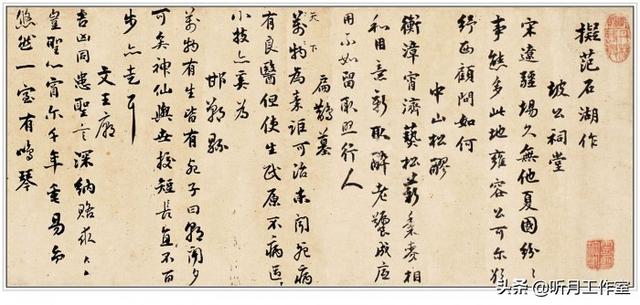 擬范石湖作
坡公祠堂
宋遼疆場久無他夏國紛々
事態多此地雍容公可尔猶
紆西顧問如何
中山松醪
衡漳霄濟藝松薪麥相
和用意新取醉老饕成底
用不如留取照行人
扁鵲墓
天下
萬物為誰可治未聞死病
有良醫但使生民原不病區
小技亦奚為
邯鄲縣
萬物有生皆有死子曰朝聞夕
可矣神仙與世較短長直不百
步亦走耳
文王廟
吉凶同患聖言深納賂求々
豈聖心宵尔千年重易
悠然一室有鳴琴
头条 @听月工作室